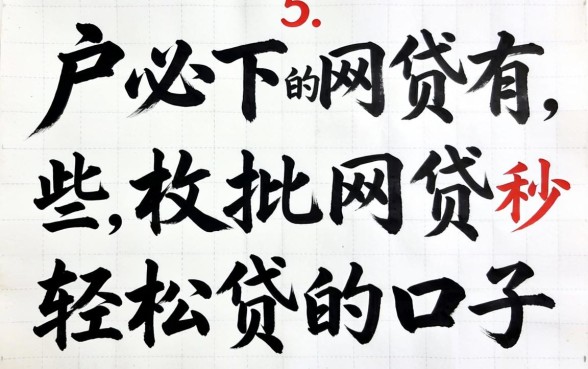 5.
户必下的网贷有,
些,枚批网贷秒
轻松贷的口子